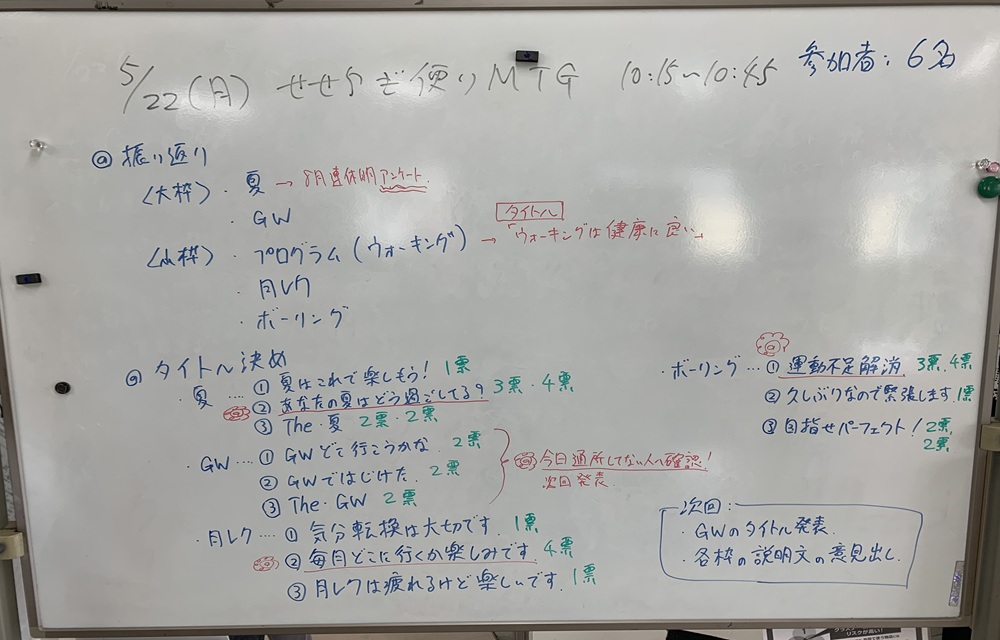 5/22(月) せせらぎ便りMTG 10:15~10:45 参加者:6名
@ 振り返り
〈大枠〉・夏 → 8月連休明アンケート
・GW
〈小枠〉・プログラム(ウォーキング) → タイトル
「ウォーキングは健康に良い」
・月レク
・ボーリング
@ タイトル決め
・夏 … ① 夏はこれで楽しもう! 1票
② あなたの夏はどう過ごしてる? 3票・4票
③ The・夏 2票・2票
・GW … ① GWどこ行こうかな 2票
② GWではじけた 2票
③ The・GW 2票
今日通所してない人へ確認!
次回発表
・月レク … ① 気分転換は大切です 1票
② 毎月どこに行くか楽しみです 4票
③ 月レクは疲れるけど楽しいです 1票
・ボーリング … ① 運動不足解消 3票、4票
② 久しぶりなので緊張します 1票
③ 目指せパーフェクト! 2票、
2票
次回:
・GWのタイトル発表
・各枠の説明文の意見出し